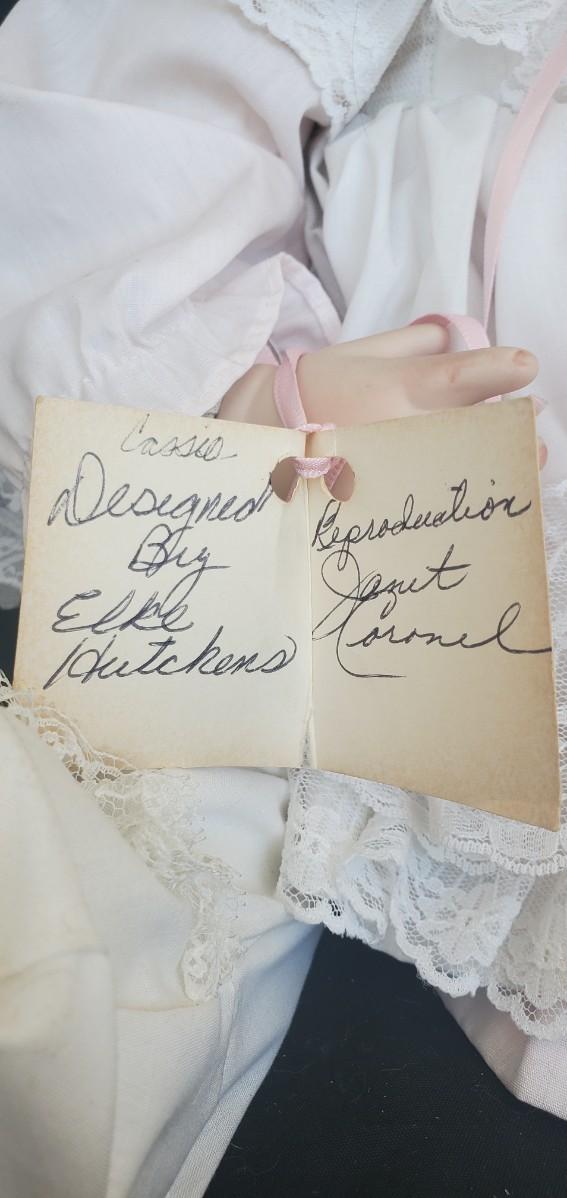 Cassie
Designed
By
Elke
Hutckens
Reproduction
Janet
Coronel